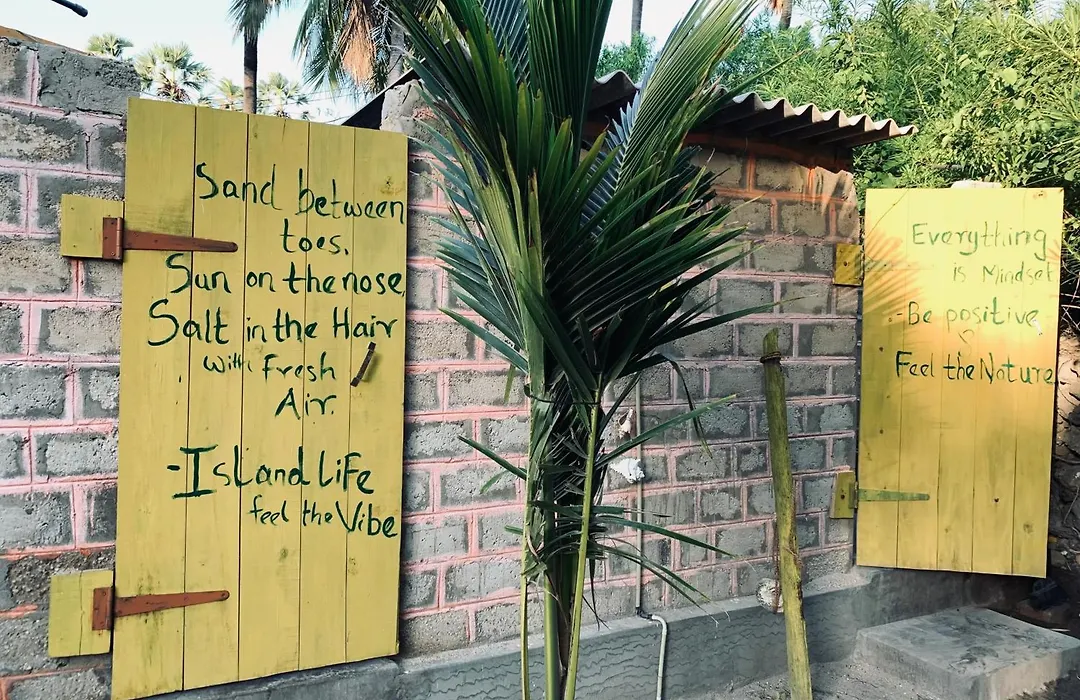 Sand between
toes.
Sun on the nose,
Salt in the Hair
with Fresh
Air.
-Island Life
feel the Vibe
Everything
is Mindset
-Be positive
Feel the Nature